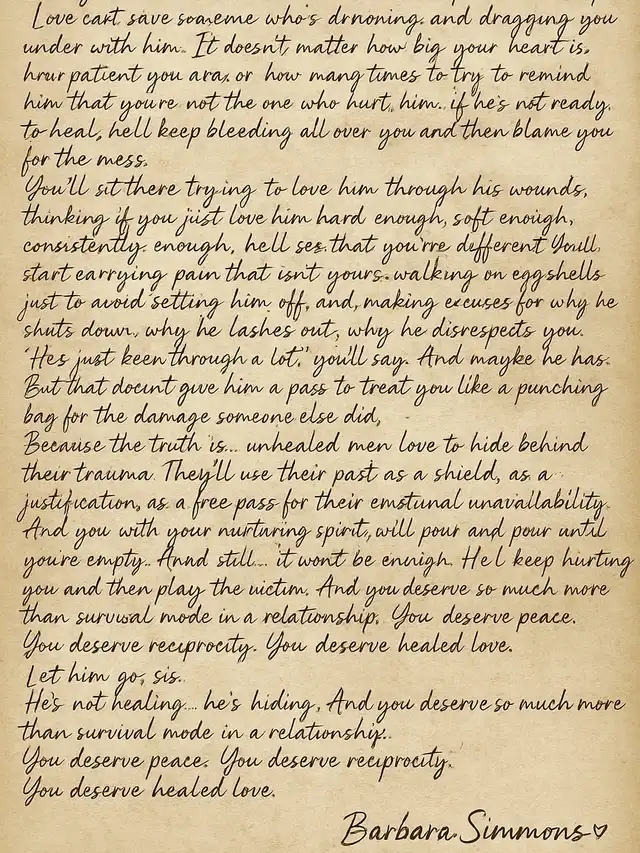 Love cart save soameme who's drnoning. and dragging you
under with him. It doesn't matter how big your heart is.
hrur patient you ara. or how mang times to try to remind
him that youre not the one who hurt him. if he's not ready.
to heal, hell keep bleeding all over you and then blame you
for the mess.
You'll sit there trying to love him through his wounds,
thinking if you just love him hard enough, soft enough,
consistently. enough, hell ses. that you'rre different Youll
start earrying pain that isn't yours. walking on eggshells
just to avoid setting him off, and, making excuses for why he
shuts down, why he lashes out, why he disrespects you.
'Hes just keen through a lot.' you'll say. And mayke he has.
But that doeint give him a pass to treat you like a punching
bag for the damage someone else did,
Because the truth is... unhealed men love to hide behind
their trauma. They'll use their past as a shield, as a
justification, as a free pass for their emstunal unavallability.
And you with your nurturing spirit, will pour and pour until
you're empty.. Annd still... it wont be ennigh. He l keep hurting
you and then play the victim. And you deserve so much more
than survival mode in a relationship. You deserve peace.
You deserve reciprocity. You deserve healed love.
Let him go, sis.
He's not healing... he's hiding, And you deserve so much more
than survival mode in a relationship..
You deserve peace. You deserve reciprocity.
You deserve healed love.
Barbara Simmons♡